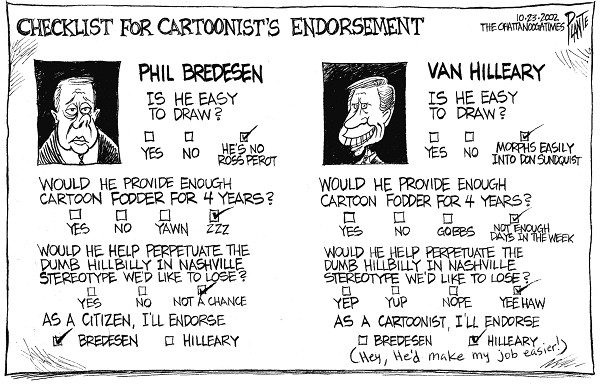 CHECKLIST FOR CARTOONIST'S ENDORSEMENT
10-23-2002
THE CHATTANOOGA TIMES
PLANTE
PHIL BREDESEN
IS HE EASY
TO DRAW?
YES NO HE'S NO
ROSS PEROT
WOULD HE PROVIDE ENOUGH
CARTOON FODDER FOR 4 YEARS?
YES NO YAWN ZZZ
WOULD HE HELP PERPETUATE THE
DUMB HILLBILLY IN NASHVILLE
STEREOTYPE WE'D LIKE TO LOSE?
YES NO NOT A CHANCE
AS A CITIZEN, I'LL ENDORSE
BREDESEN HILLEARY
VAN HILLEARY
IS HE EASY
TO DRAW?
YES NO MORPHS EASILY
INTO DON SUNDQUIST
WOULD HE PROVIDE ENOUGH
CARTOON FODDER FOR 4 YEARS?
YES NO GOBBS NOT ENOUGH
DAYS IN THE WEEK
WOULD HE HELP PERPETUATE THE
DUMB HILLBILLY IN NASHVILLE
STEREOTYPE WE'D LIKE TO LOSE?
YEP YUP NOPE YEE HAW
AS A CARTOONIST, I'LL ENDORSE
BREDESEN HILLEARY
(Hey, He'd make my job easier!)